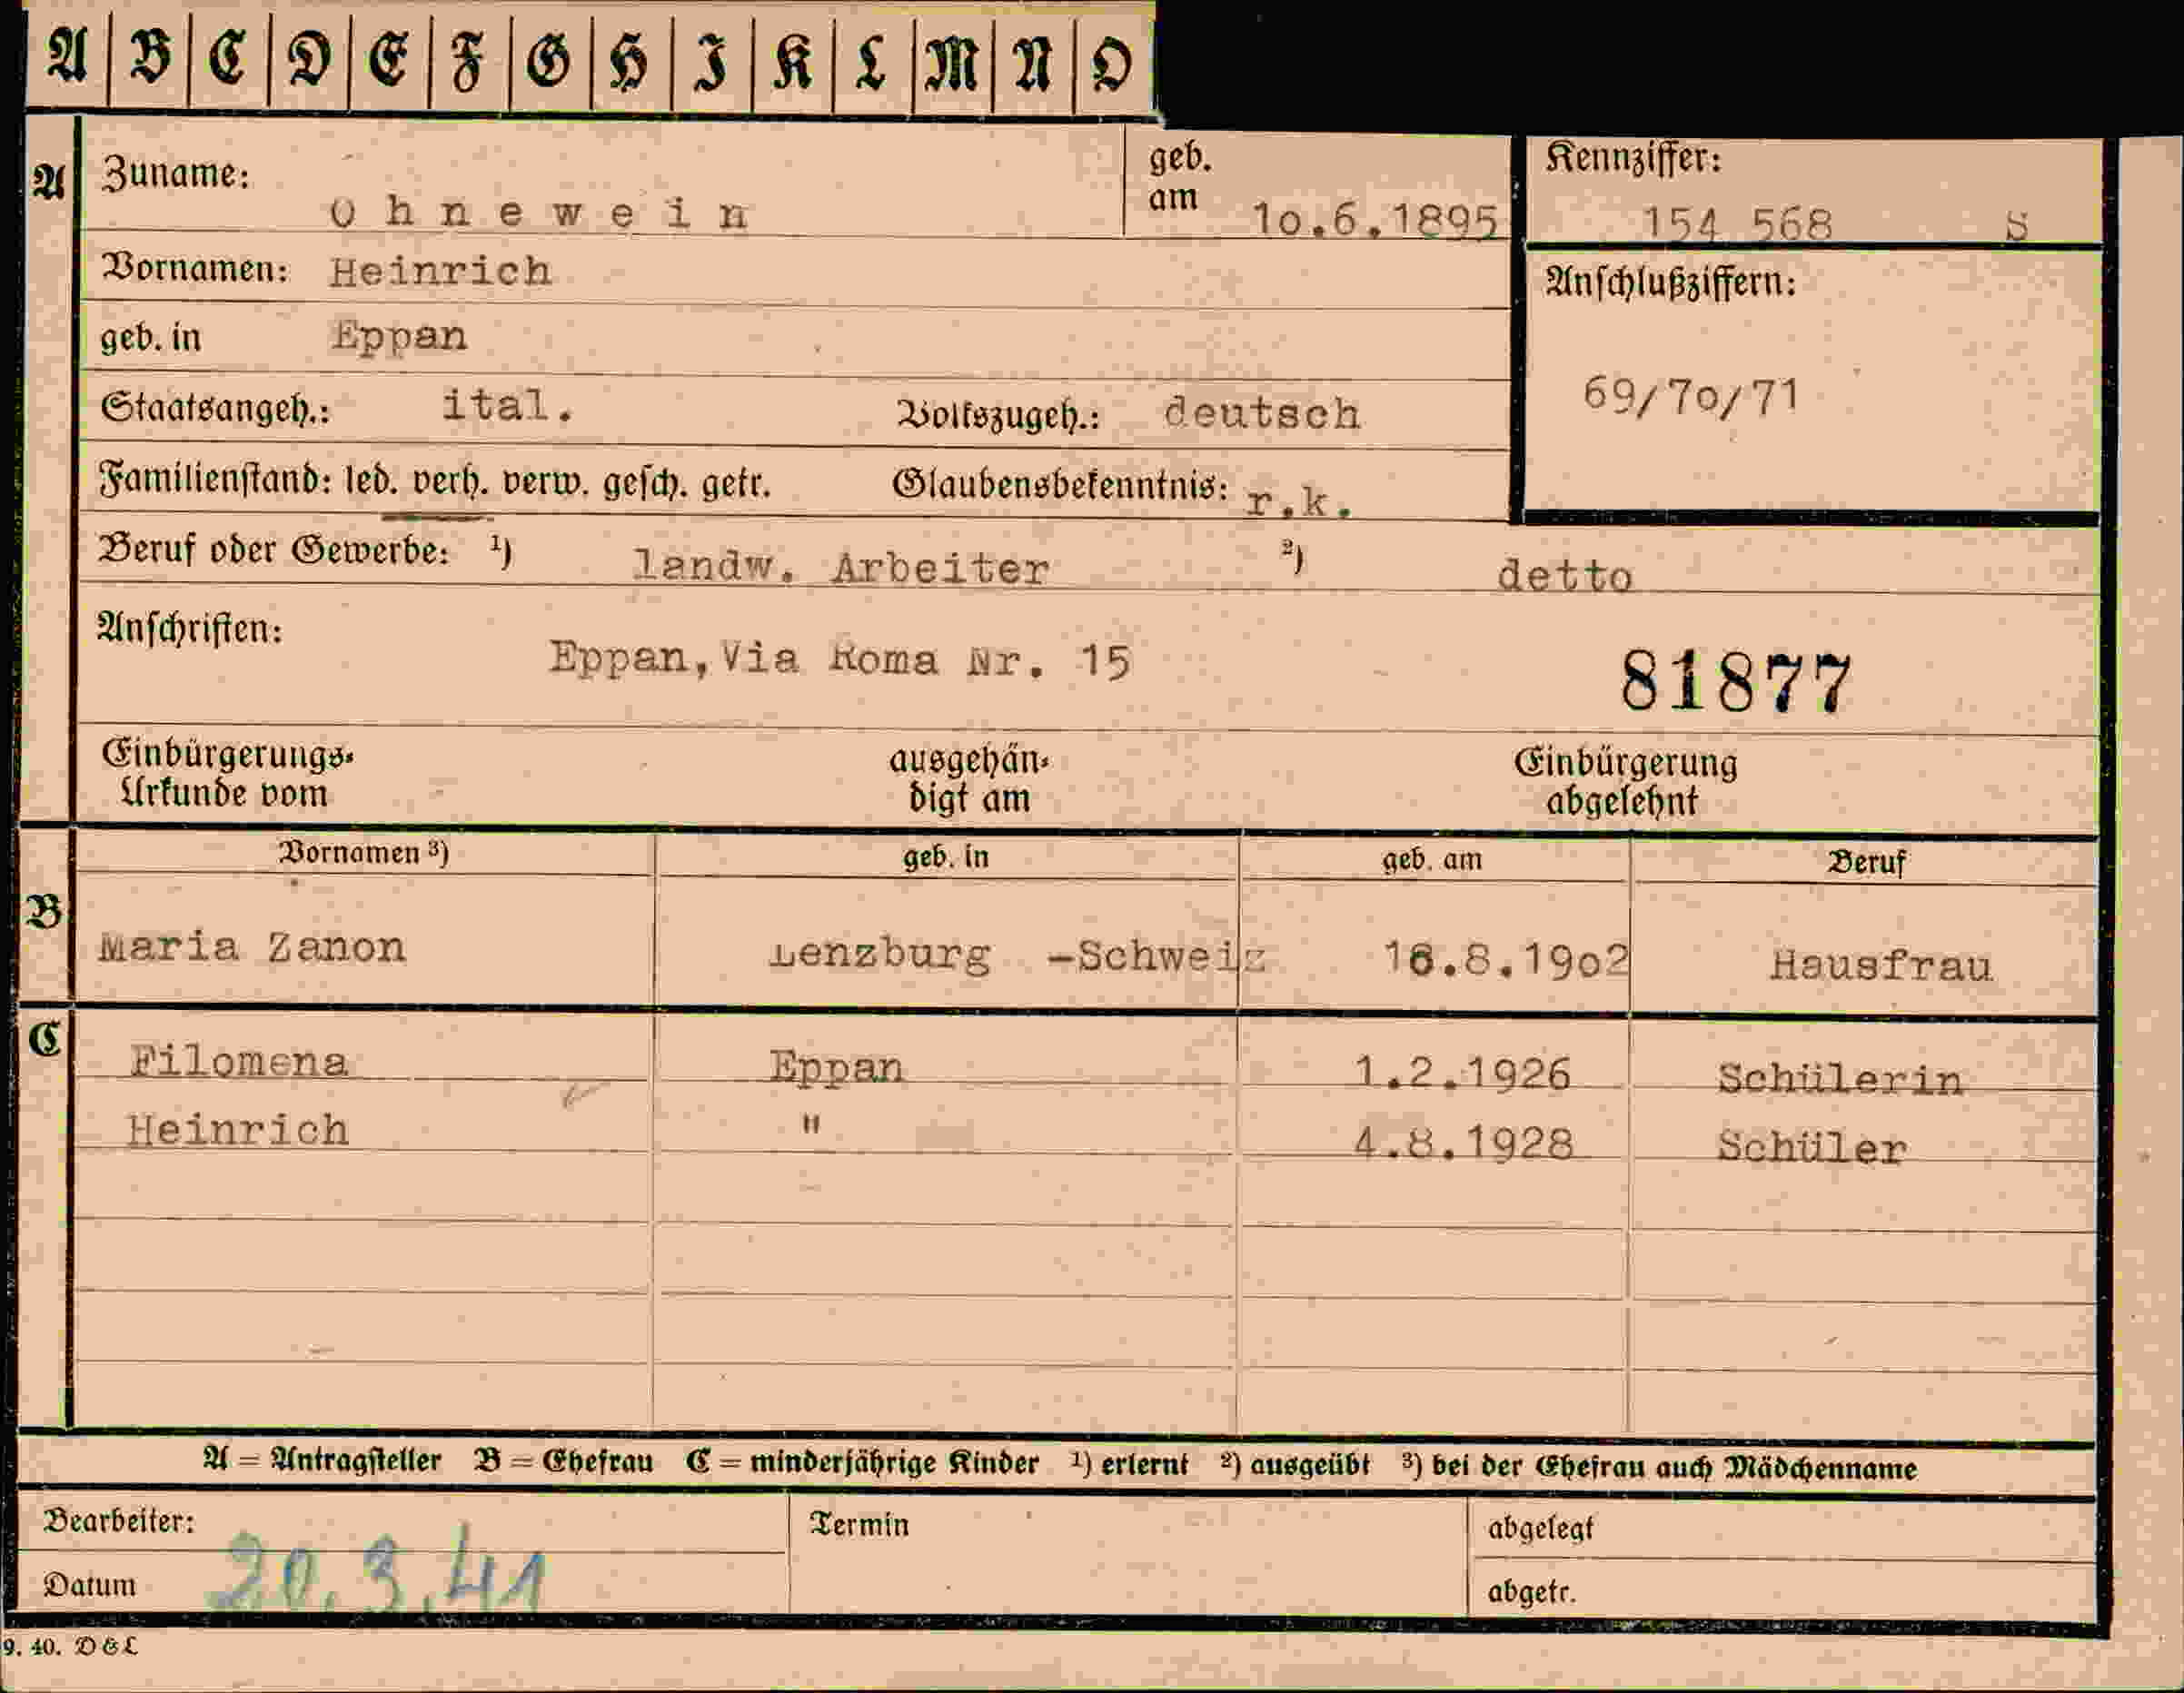 A B C D E F G H I K L M N O
A Zuname: Ohnewein geb. am 10.6.1895 Kennziffer: 154 568 S
Vornamen: Heinrich Anschlußziffern:
geb. in Eppan
69/70/71
Staatsangeh.: ital. Volkszugeh.: deutsch
Familienstand: led. verh. verw. gesch. getr. Glaubensbekenntnis: r.k.
Beruf oder Gewerbe: ¹) landw. Arbeiter ²) detto
Anschriften: Eppan, Via Roma Nr. 15 81877
Einbürgerungs- ausgehän- Einbürgerung
Urkunde vom digt am abgelehnt
Vornamen ³) geb. in geb. am Beruf
B Maria Zanon Lenzburg -Schweiz .8.1902 Hausfrau
C Filomena Eppan 1.2.1926 Schülerin
Heinrich " 4.8.1928 Schüler
A = Antragsteller B = Ehefrau C = minderjährige Kinder ¹) erlernt ²) ausgeübt ³) bei der Ehefrau auch Mädchenname
Bearbeiter: Termin abgelegt
Datum 20.3.41 abgetr.
9. 40. D & L